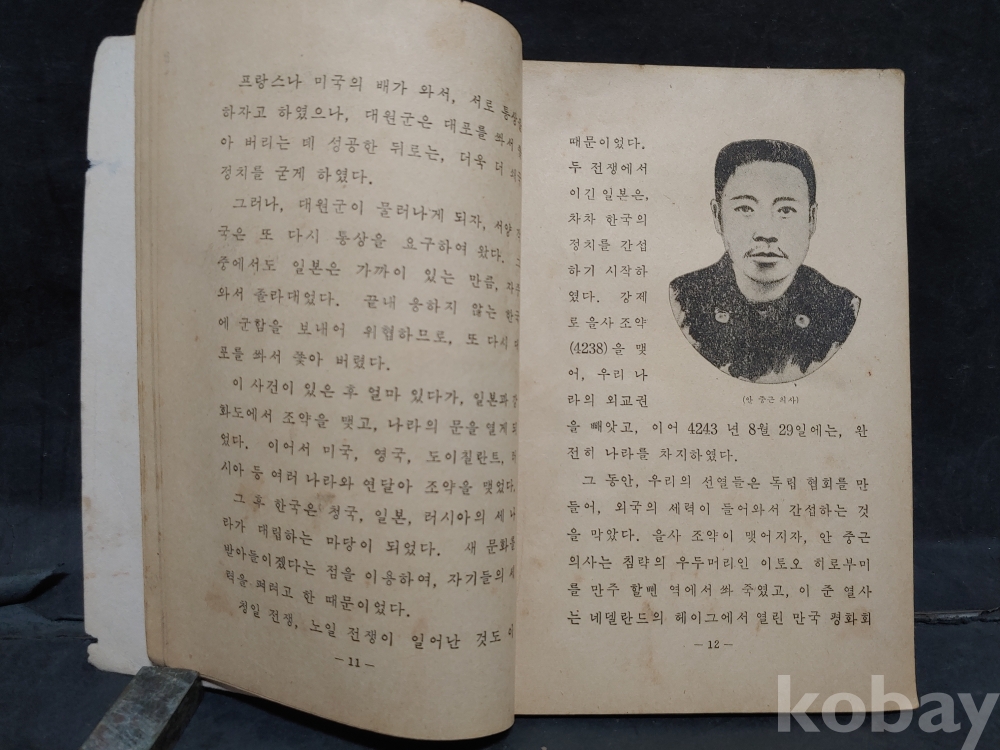 프랑스나 미국의 배가 와서, 서로
하자고 하였으나, 대원군은 대포를 쏴서
아 버리는 데 성공한 뒤로는, 더욱 더
정치를 굳게 하였다.
그러나, 대원군이 물러나게 되자, 서양
국은 또 다시 통상을 요구하여 왔다.
중에서도 일본은 가까이 있는 만큼,
와서 졸라대었다. 끝내 응하지 않는
에 군함을 보내어 위협하므로, 또 다시
포를 쏴서 쫓아 버렸다.
이 사건이 있은 후 얼마 있다가, 일본과
화도에서 조약을 맺고, 나라의 문을 열게
었다. 이어서 미국, 영국, 도이칠란트,
시아 등 여러 나라와 연달아 조약을 맺었다.
그 후 한국은 청국, 일본, 러시아의 세
라가 대립하는 마당이 되었다. 새 문화를
받아들이겠다는 점을 이용하여, 자기들의
력을 펴려고 한 때문이었다.
청일 전쟁, 노일 전쟁이 일어난 것도
— 11 —
때문이었다.
두 전쟁에서
이긴 일본은,
차차 한국의
정치를 간섭
하기 시작하
였다. 강제
로 을사 조약
(4238)을 맺
어, 우리 나
라의 외교권
(안 중근 의사)
을 빼앗고, 이어 4243 년 8월 29일에는, 완
전히 나라를 차지하였다.
그 동안, 우리의 선열들은 독립 협회를 만
들어, 외국의 세력이 들어와서 간섭하는 것
을 막았다. 을사 조약이 맺어지자, 안 중근
의사는 침략의 우두머리인 이토오 히로부미
를 만주 할삔 역에서 쏴 죽였고, 이 준 열사
는 네델란드의 헤이그에서 열린 만국 평화회
— 12 —
kobay